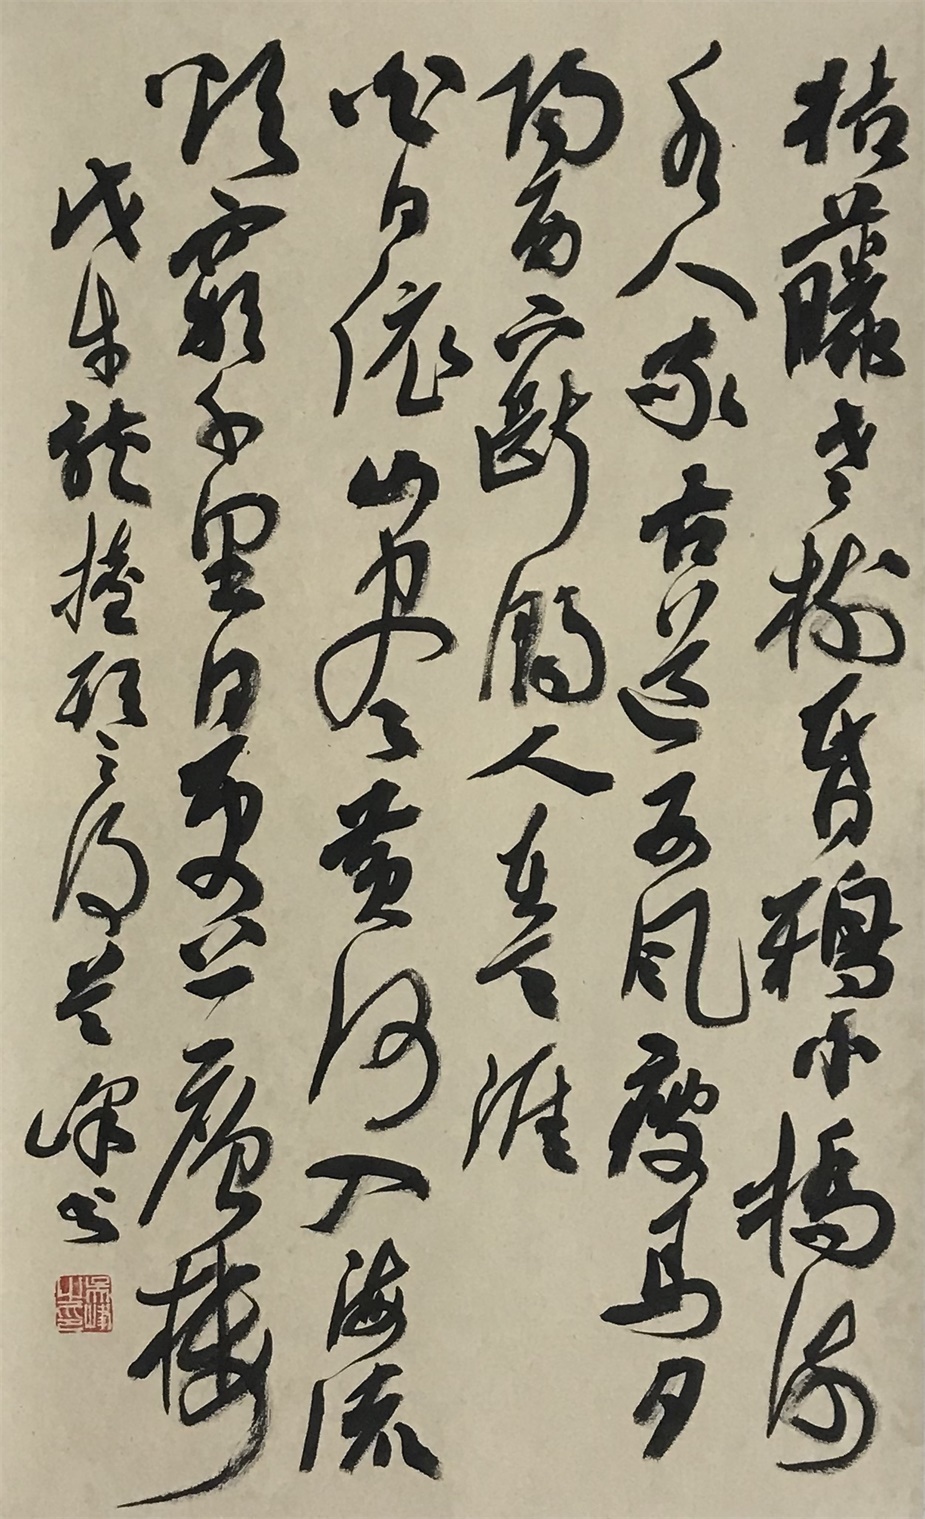 枯藤老樹昏鴉小橋流
水人家古道西風瘦馬夕
陽西下斷腸人在天涯
白日依山盡黃河入海流
欲窮千里目更上一層樓
戊 之 峰书
吴峰之印